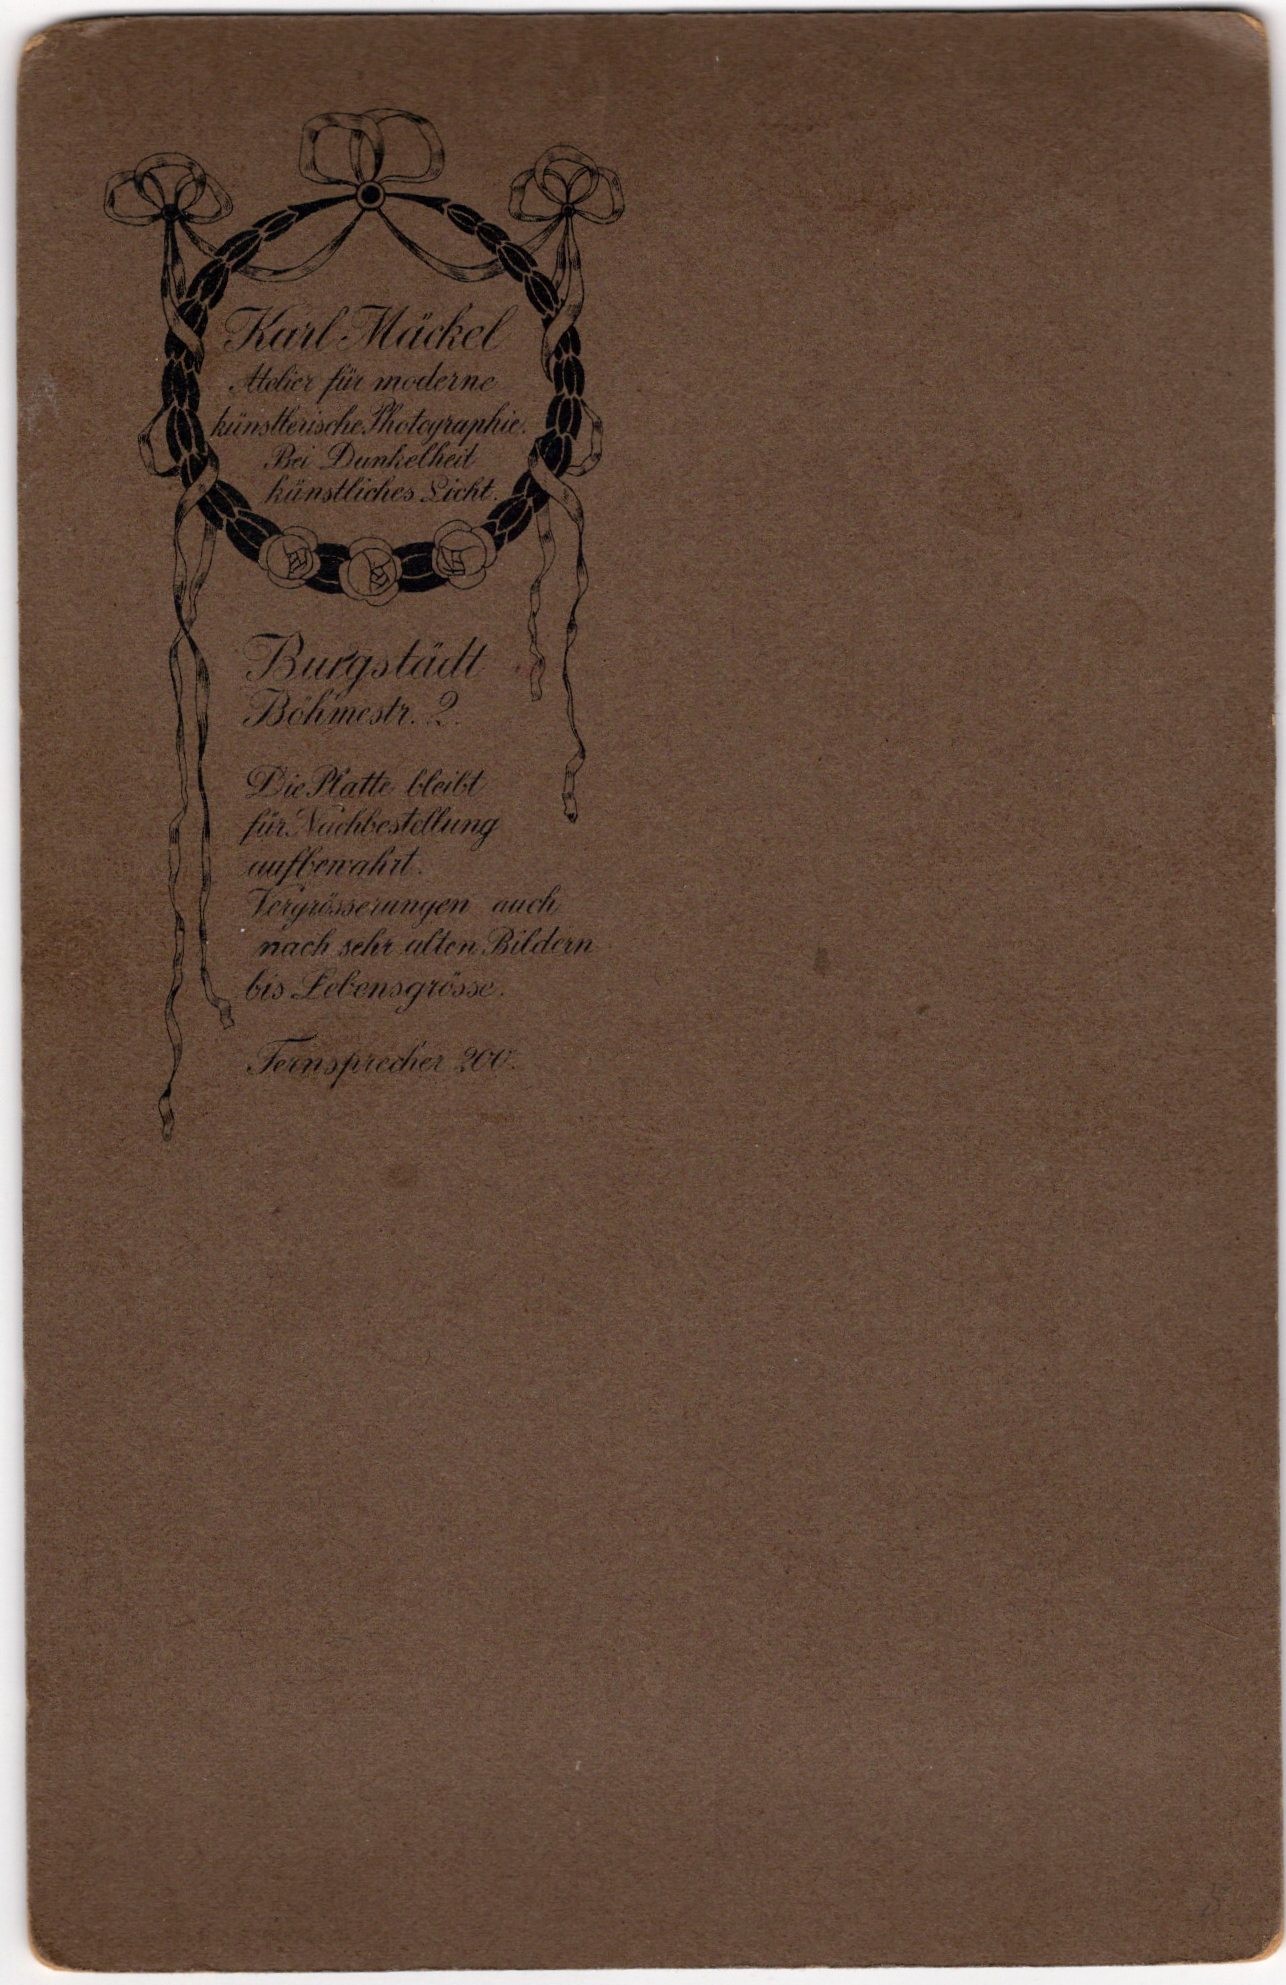 Karl Mäckel
Atelier für moderne
künstlerische Photographie.
Bei Dunkelheit
künstliches Licht.
Burgstädt
Böhmestr. 2.
Die Platte bleibt
für Nachbestellung
aufbewahrt.
Vergrösserungen auch
nach sehr alten Bildern
bis Lebensgrösse.
Fernsprecher 200.